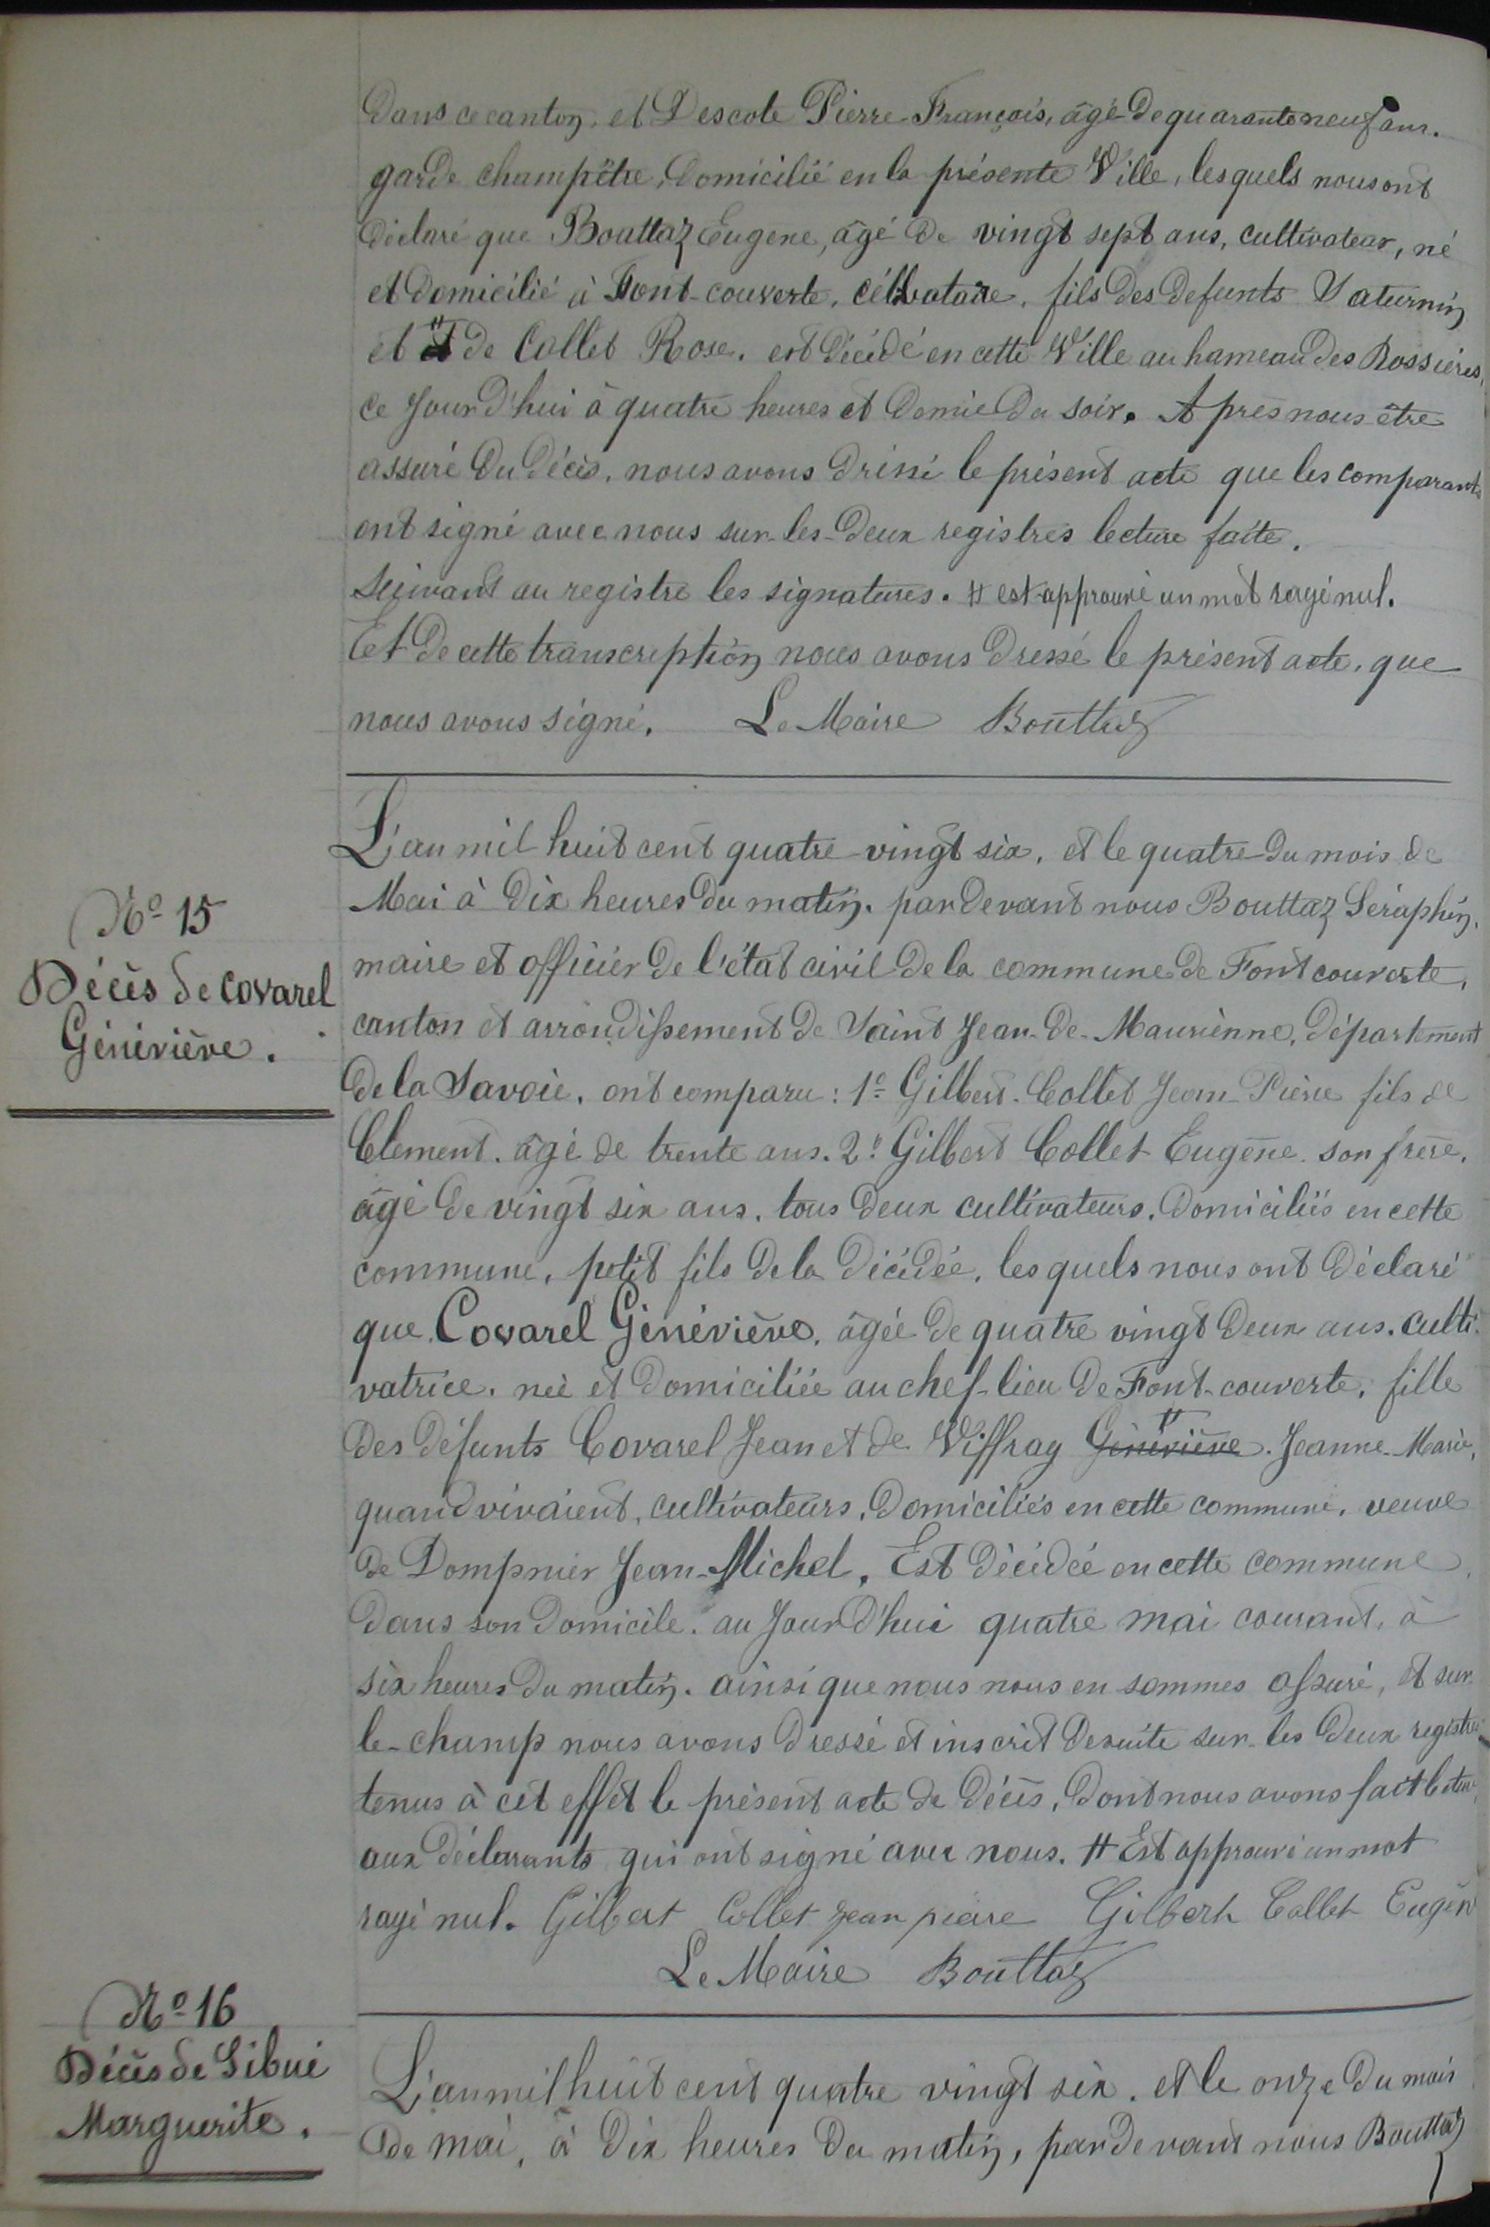 dans ce canton, et Descote Pierre-François, âgé de quarante neuf ans.
garde champêtre, domicilié en la présente Ville, lesquels nous ont
déclaré que Bouttaz Eugène, âgé de vingt sept ans, cultivateur, né
et domicilié à Font-couverte, célibataire, fils des defunts Saturnin
et de Collet Rose. est décédé en cette Ville au hameau des Rossières,
ce jourd'hui à quatre heures et demie du soir. Après nous être
assuré du décès, nous avons dressé le présent acte que les comparants
ont signé avec nous sur-les-deux registres lecture faite.
Suivant au registre les signatures. # est approuvé un mot rayé nul.
Et de cette transcription nous avons dressé le présent acte, que
nous avons signé. Le Maire Bouttaz
N° 15
Décès de Covarel
Généviève.
L'an mil huit cent quatre-vingt six, et le quatre du mois de
Mai à dix heures du matin, par devant nous Bouttaz Séraphin,
maire et officier de l'état civil de la commune de Font couverte,
canton et arrondissement de Saint Jean-de-Maurienne, département
de la Savoie, ont comparu : 1° Gilbert-Collet Jean-Pierre fils de
Clement, âgé de trente ans. 2° Gilbert Collet Eugène son frère,
âgé de vingt six ans, tous deux cultivateurs, domiciliés en cette
commune, petit fils de la décédée, lesquels nous ont déclaré
que Covarel Généviève, âgée de quatre vingt deux ans, culti-
vatrice, née et domiciliée au chef-lieu de Font-couverte, fille
des défunts Covarel Jean et de Viffray Généviève # Jeanne-Marie,
quand vivaient, cultivateurs, domiciliés en cette commune, veuve
de Dompnier Jean-Michel, Est décédée en cette commune
dans son domicile, au jourd'hui quatre mai courant, à
six heures du matin, ainsi que nous nous en sommes assuré, et sur-
le-champ nous avons dressé et inscrit desuite sur-les deux registres
tenus à cet effet le présent acte de décès, dont nous avons fait lecture
aux déclarants qui ont signé avec nous. # Est approuvé un mot
rayé nul. Gilbert Collet Jean pierre Gilbert Collet Eugèn
Le Maire Bouttaz
N° 16
Décès de Sibué
Marguerite.
L'an mil huit cent quatre vingt six, et le onze du mois
de mai, à dix heures du matin, par devant nous Bouttaz